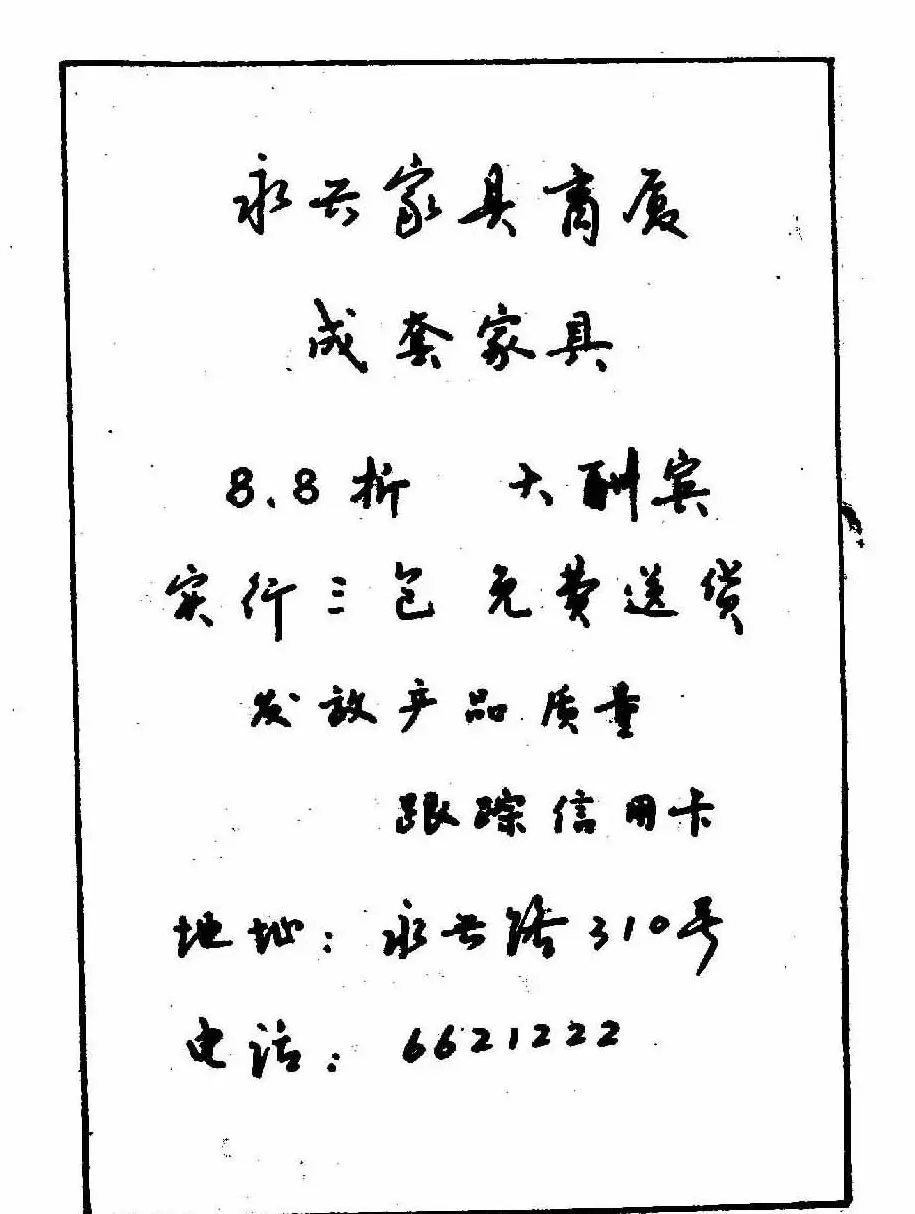 永兴家具商厦
成套家具
8.8折 大酬宾
实行三包 免费送货
发放产品质量
跟踪信用卡
地址：永兴路310号
电话：6621222